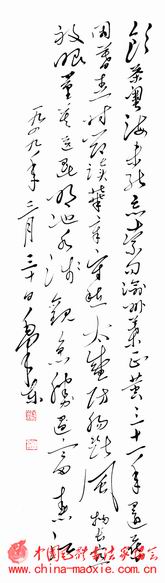 饮茶粤海未能忘索句渝州叶正黄三十一年还旧
国落花时节读华章牢骚太盛防肠断风物长宜
放眼量莫道昆明池水浅观鱼胜过富春江
三月三十日
中国毛体书法家协会
www.china-maoxie.com.cn